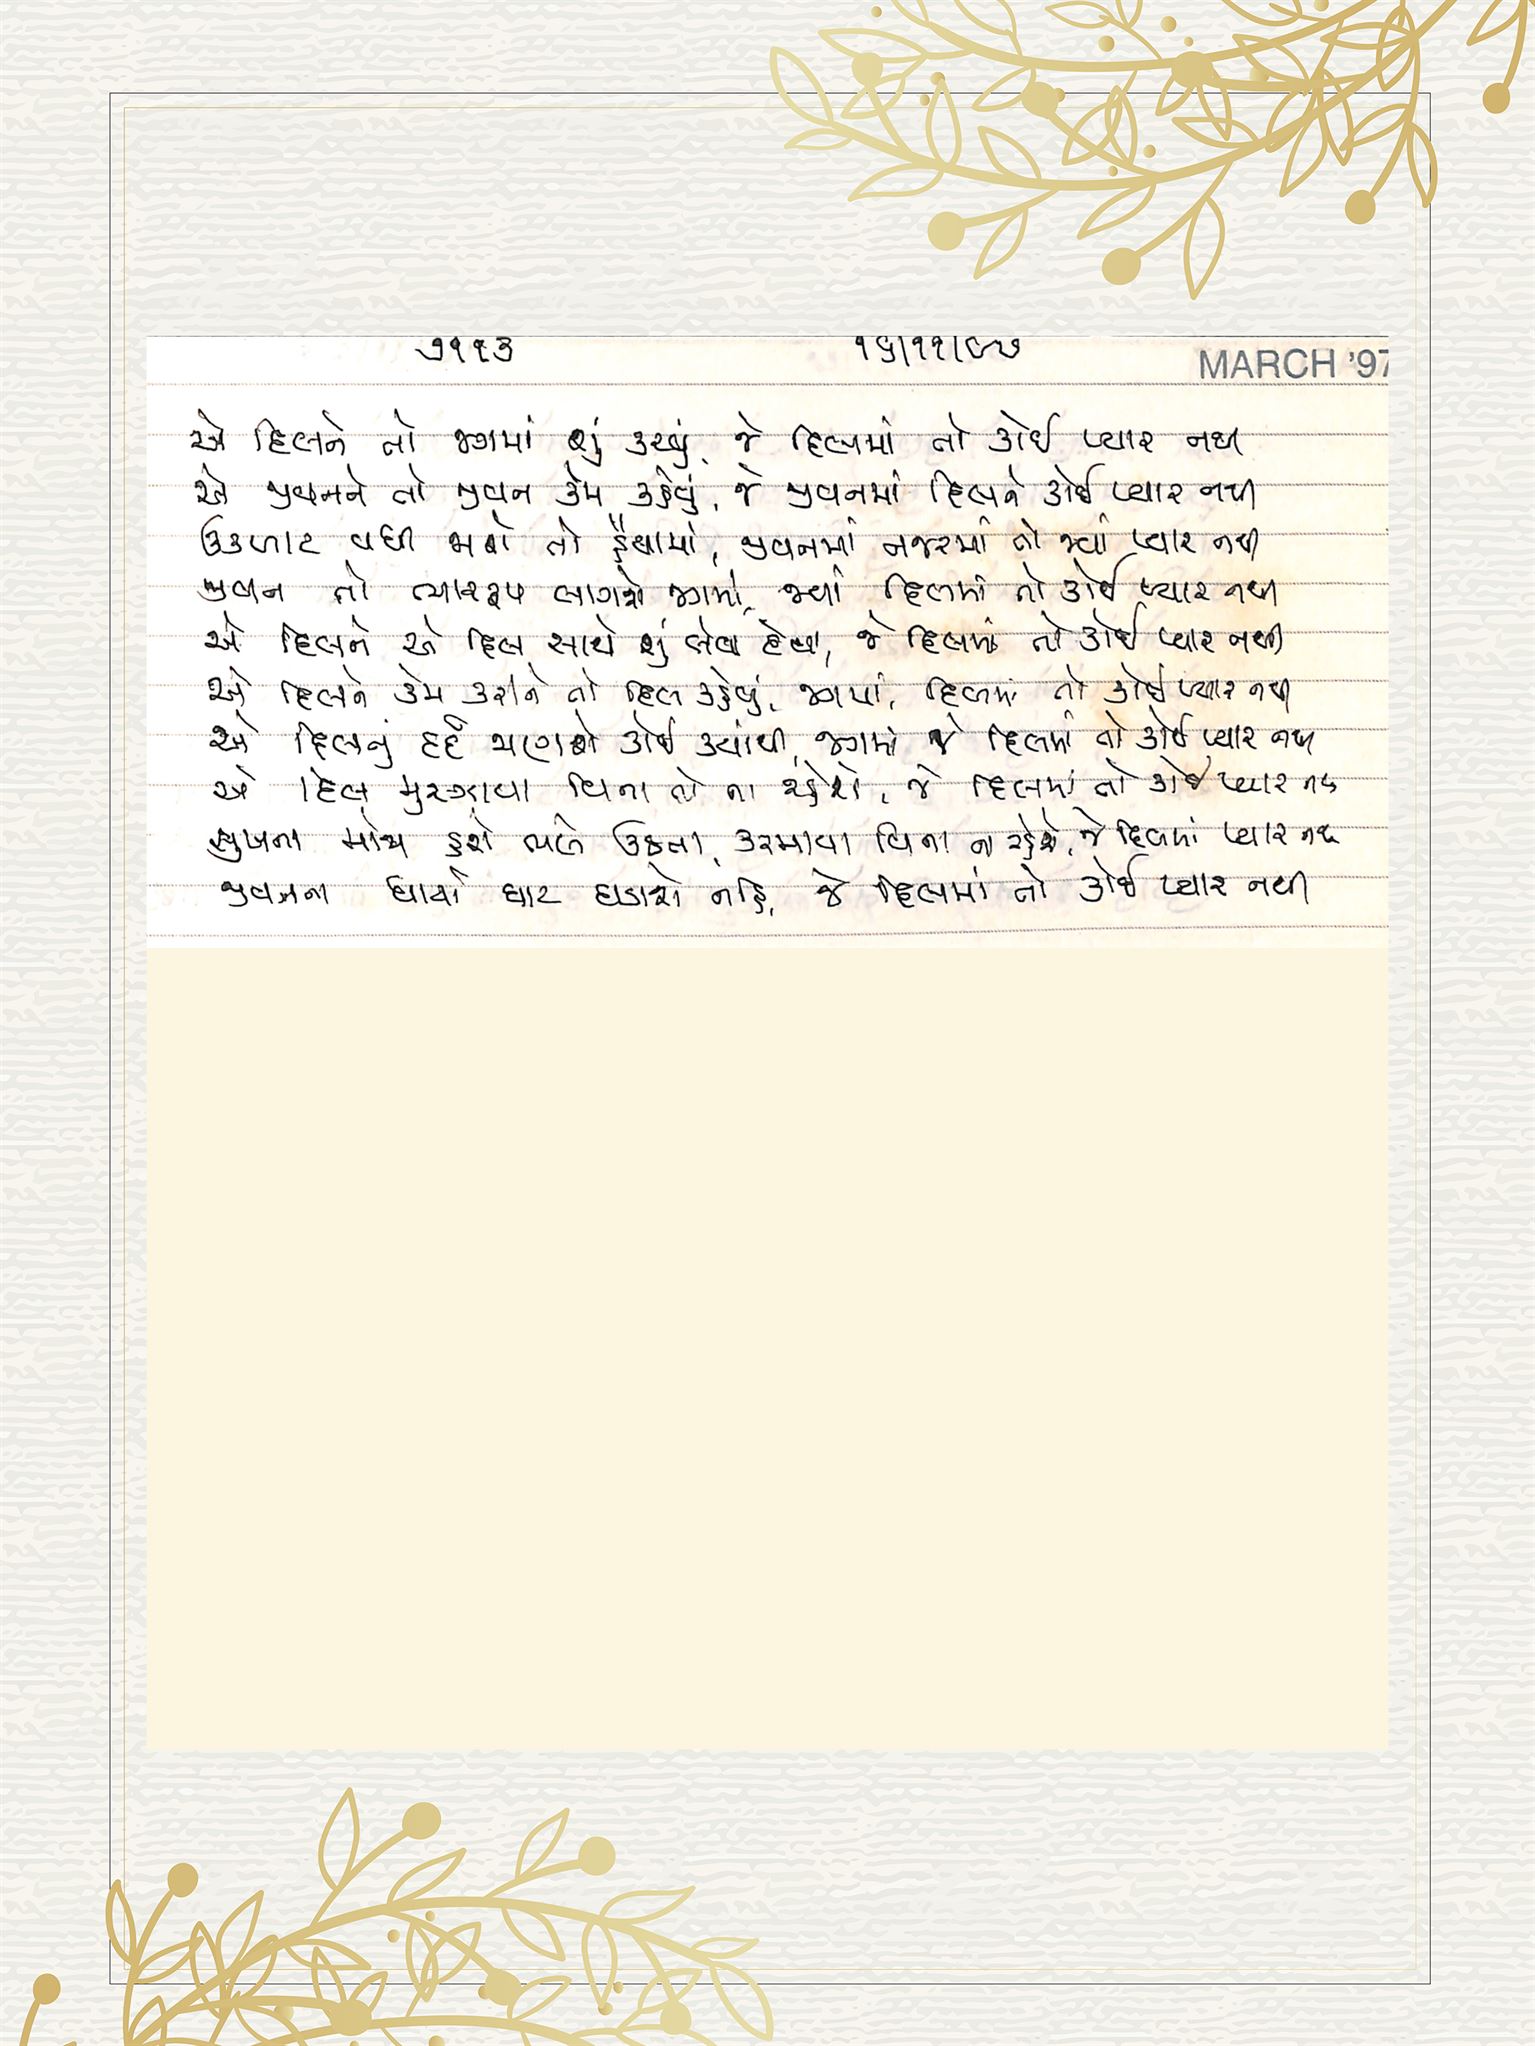 ૭૧૧૩ ૧૬/૧૧/૯૭ MARCH '97
એ દિલને તો જગમાં શું કરવું, જે દિલમાં તો કોઈ પ્યાર નથી
એ જીવનને તો જીવન કેમ કહેવું, જે જીવનમાં દિલને કોઈ પ્યાર નથી
ઉકળાટ વધી જાશે તો હૈયામાં, જીવનમાં નજરમાં તો જ્યાં પ્યાર નથી
જીવન તો ભારરૂપ લાગશે જગમાં, જ્યાં દિલમાં તો કોઈ પ્યાર નથી
એ દિલને એ દિલ સાથે શું લેવા દેવા, જે દિલમાં તો કોઈ પ્યાર નથી
એ દિલને કેમ કરીને તો દિલ કહેવું, જગમાં, દિલમાં તો કોઈ પ્યાર નથી
એ દિલનું દર્દ જાણશે કોઈ ક્યાંથી, જગમાં જે દિલમાં તો કોઈ પ્યાર નથી
એ દિલ મુરઝાયા વિના તો ના રહેશે, જે દિલમાં તો કોઈ પ્યાર નથી
સુખના મોજા હશે ભલે ઉછળતા, કરમાયા વિના ના રહેશે, જે દિલમાં પ્યાર નથી
જીવનના ઘાટો ઘાટ ઘડાશે નહિ, જે દિલમાં તો કોઈ પ્યાર નથી